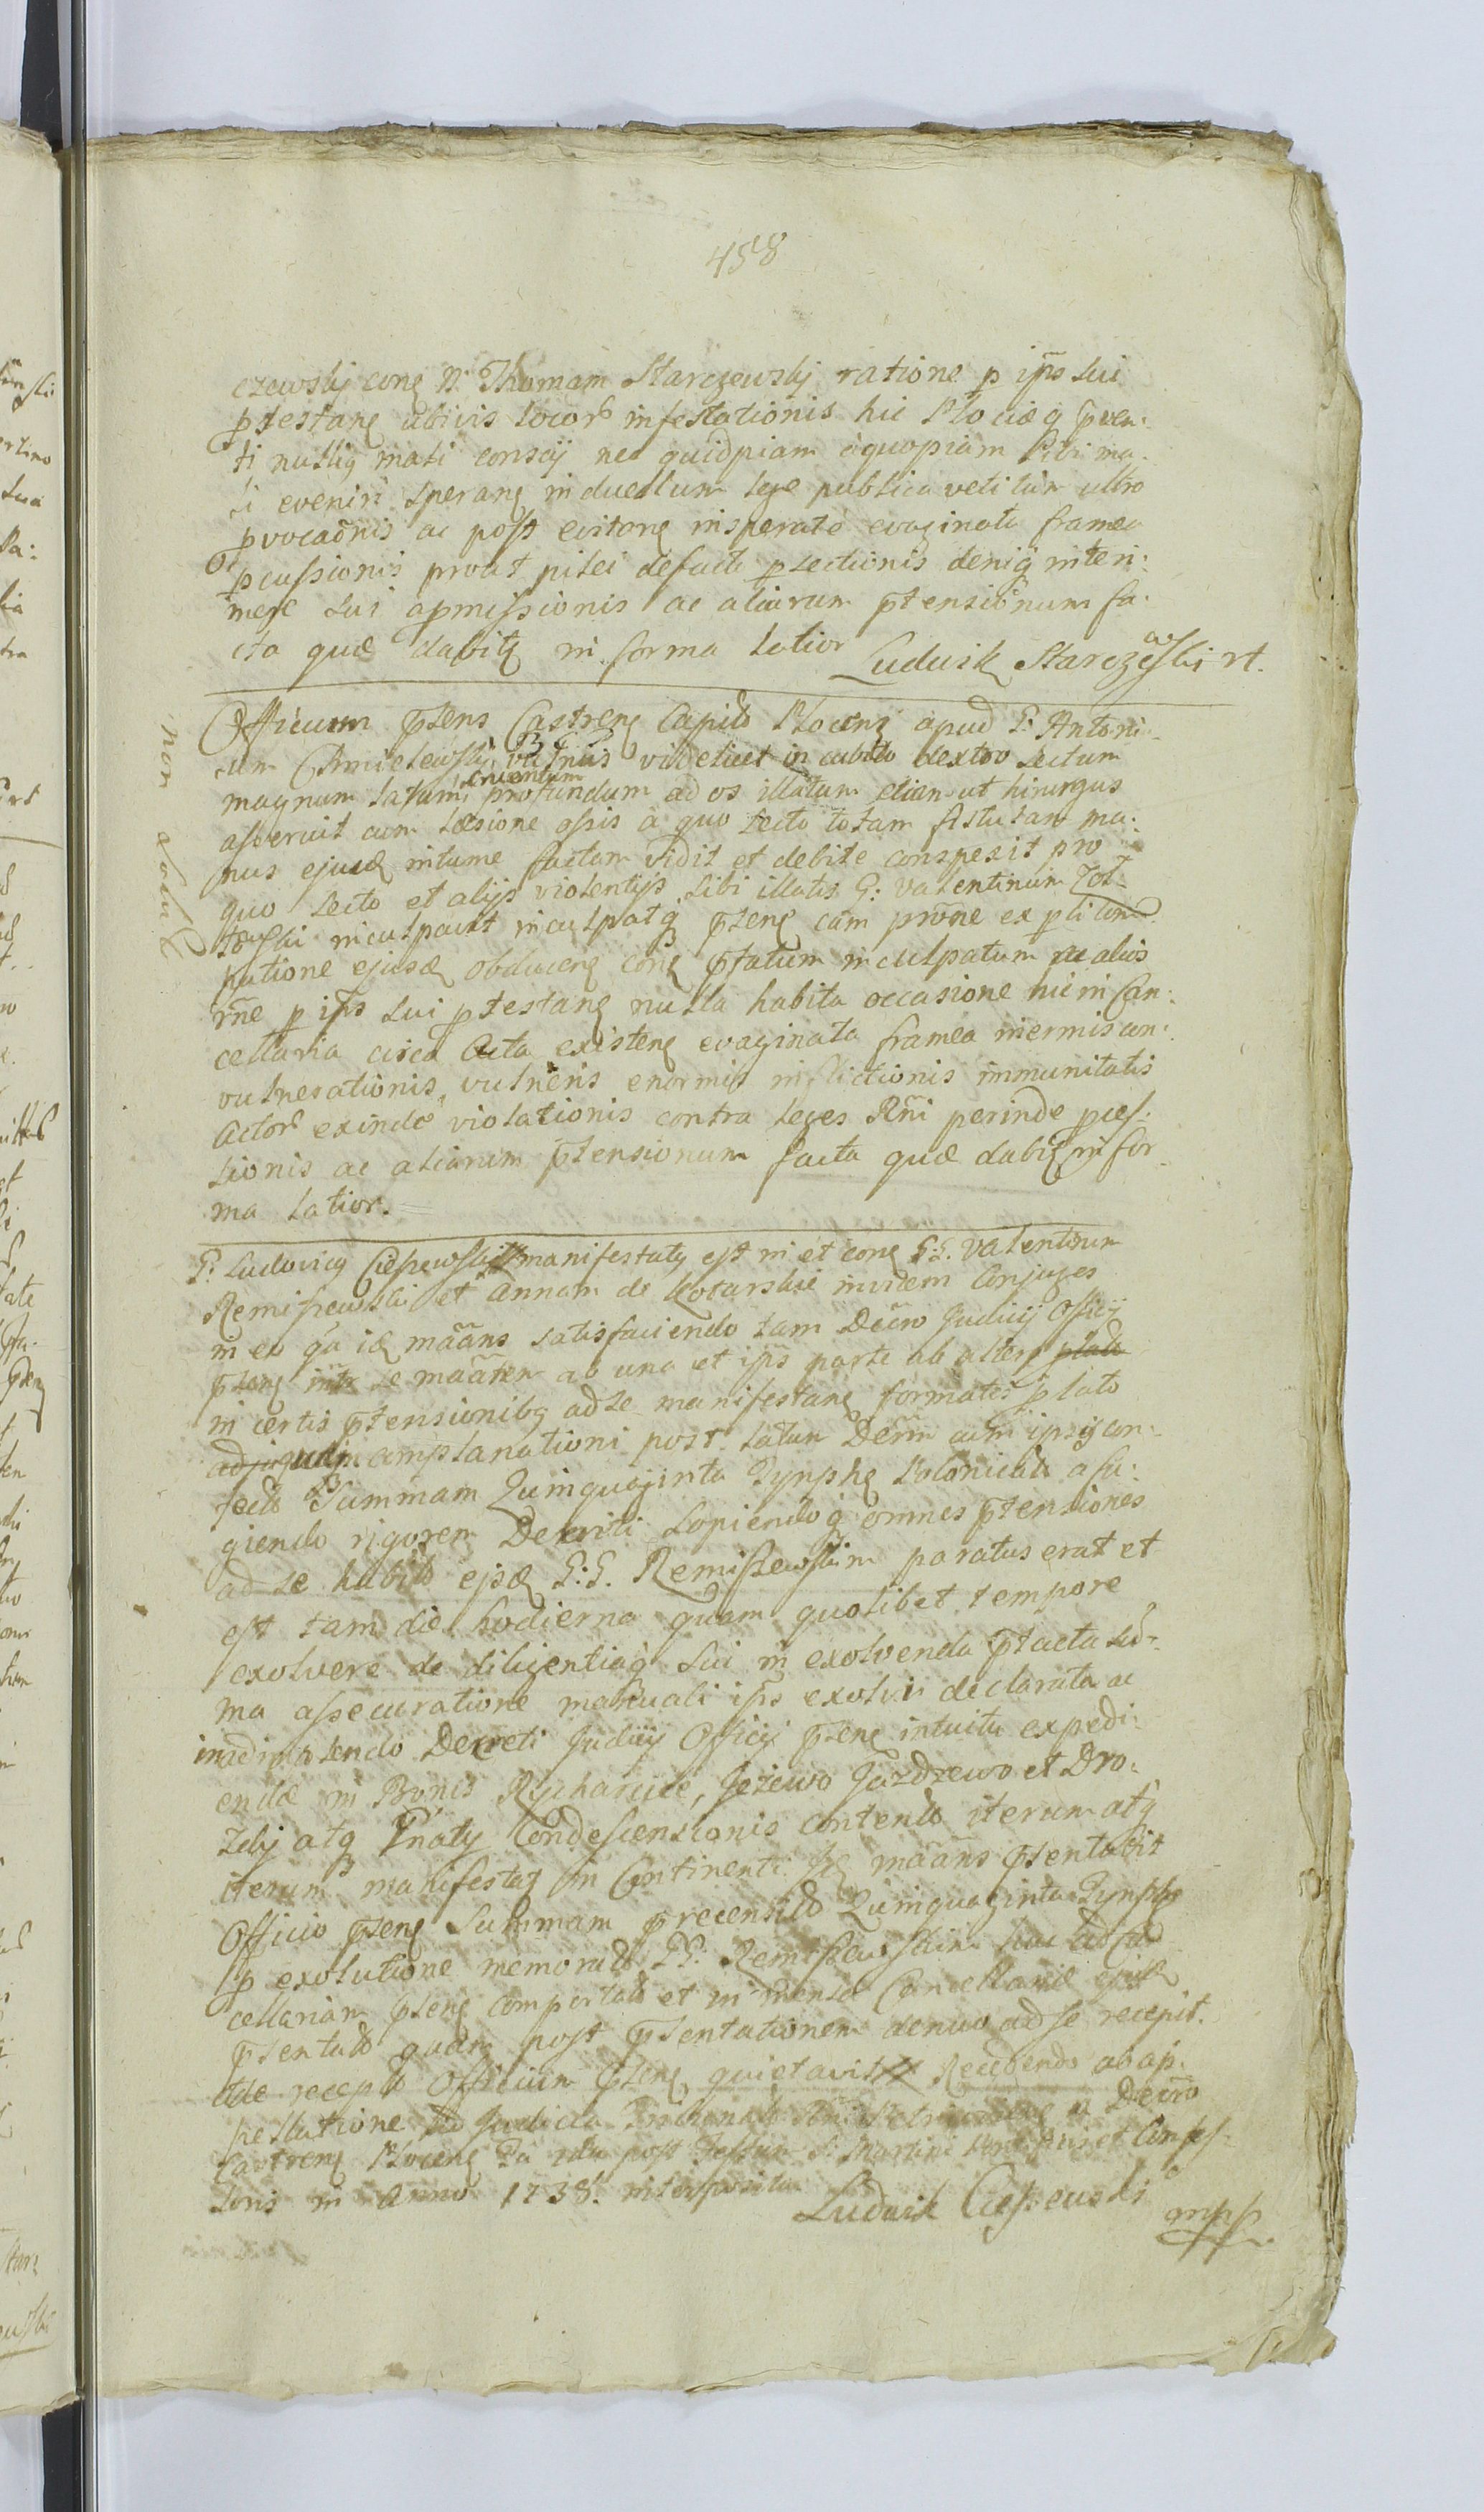 458
czewskj conq N. Thomam Starczewskj ratione p ipso sui
ptestanq ubivis locor infestationis hic Plociæ q pven:
ti nulliq mali conscij nec quidpiam aquopiam sibi ma:
li eveniri speranq in duellum lege publica vetitum ultro
pvocaonis ac post evitonq insperate evaginata framea
pcussionis prout pilei defacto psectionis deniq interi:
mere sui apmissionis ac aliarum ptensionum fa:
cta quæ dabitq in forma latior Ludwik Starczewski rt.
non solut
Officium psens Castrenq Capitlo Plocens apud G: Antoni:
um Chmielewskj vulnus videlicet in cubito dextro sectum
magnum latum cruentum profundum ad os illatum etiam ut hirurgus
asseruit cum læsione ossis a quo secto totam fistulam ma:
nus ejusdq intume factam vidit et debite conspexit pro
quo secto et alijs violentijs sibi illatis G: Valentinum
inculpavit inculpatq psenq cum prone ex
patione ejusdq obducenq conq ptatum inculpatum
rne p ipso sui ptestanq nulla habita occasione hic in Can:
cellaria circa Acta existenq evaginata framea inermis con:
vulnerationis, vulneris enormis inflictionis immunitatis
Actor exinde violationis contra leges Rni perinde pces:
sionis ac aliarum ptensionum facta quæ dabitq in for
ma latior.
G: Ludovicq Ciessewski manifestatq est in et conq G:G. Valentinum
Remiszewski et Annam de Kotarskie invicem Conjuges
in eo qa idq maans satisfaciendo tam Decro Judicij Officij
psenq intr se maanten ab una et ipis parte ab altera
in certis ptensionibq ad se manifestanq formatis p lato
complanationi post latum Decm cum ipsis con:
fecto Summam Quinquaginta Tynphq Polonicali afu:
giendo rigorem Decreti sopiendoq omnes ptensiones
ad se habito ejsdq G:G. Remiszewskim paratus erat et
est tam die hodierna quam quolibet tempore
exolvere de diligentiaq sui in exolvenda ptacta sum:
ma assecuratione manuali ipso exolvi declarata ac
inadimplendo Decreti Judicij Officij psenq intuitu expedi:
endæ in Bonis Rycharcice, Jeżewo Jazdzewo et Dro:
zdzj atq Pnatq Condescensionis contento iterum atq
iterum manifestatq In Continenti Idq maans psentavit
Officio psenq Summam precensito Quinquaginta Tynphq
p exolutione memorato GG: Remiszewskim hac ad Can
cellariam psenq comportato et in mensa Cancellariæ ejusdq
psentato quam post psentationem denuo ad se recepit.
de recepto Officium psenq quietavit Recedendo ab ap:
pellatione ad Judicia Tribunalis
Castrenq Plocenq Fa 2da post Festum S: Martini Pontificis et Confes:
soris in Anno 1738. interposita
Ludwik Ciessewski mpp